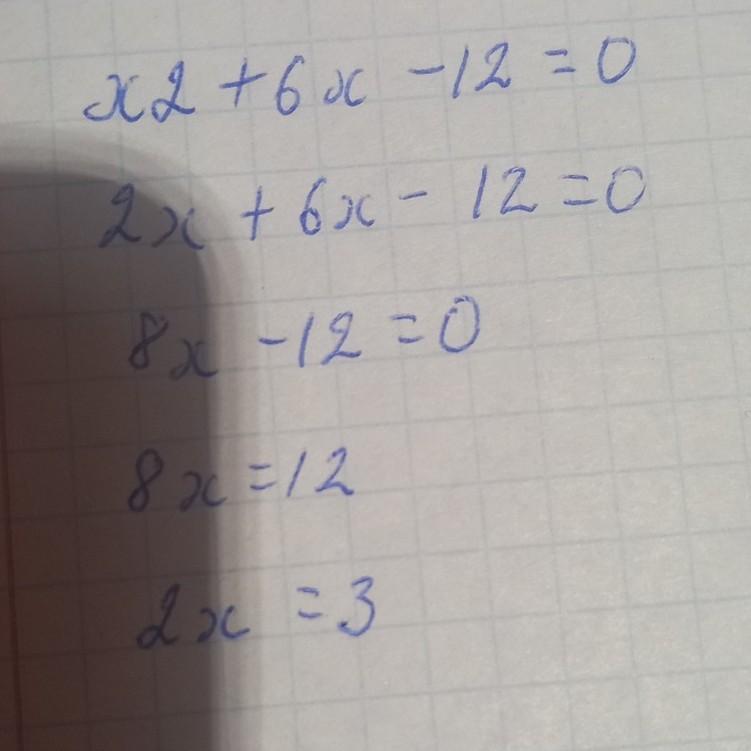 x2 + 6x - 12 = 0
2x + 6x - 12 = 0
8x - 12 = 0
8x = 12
2x = 3